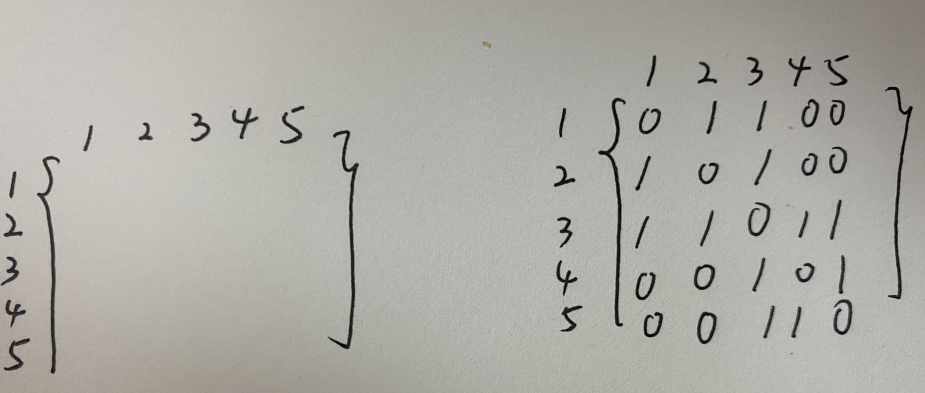 1 2 3 4 5
1
2
3
4
5
1 2 3 4 5
1 0 1 1 0 0
2 1 0 1 0 0
3 1 1 0 1 1
4 0 0 1 0 1
5 0 0 1 1 0